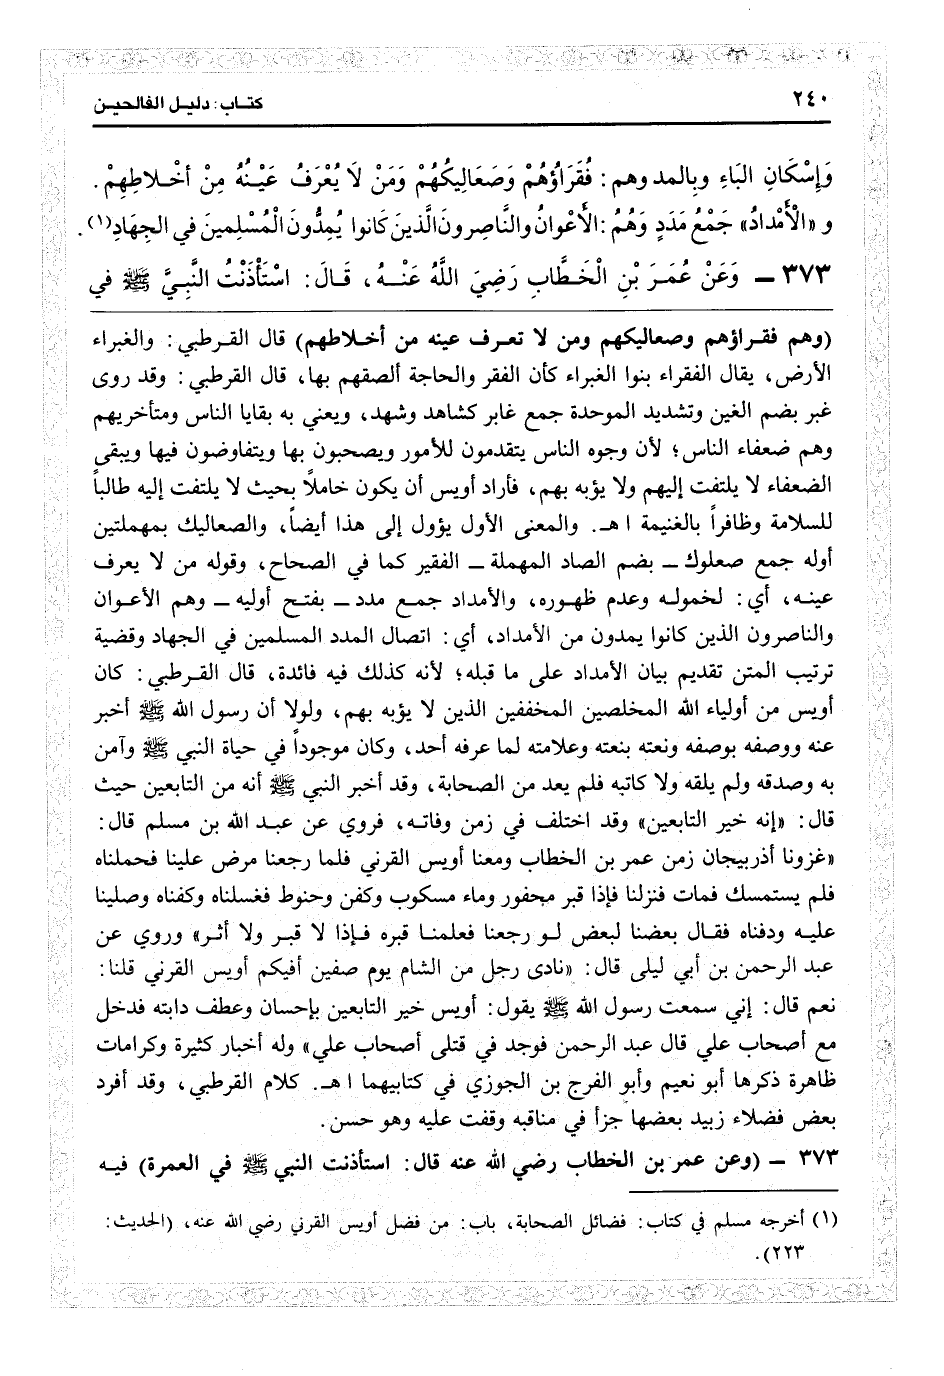 ٢٤٠
كتـاب: دليـل الفالحيـن
وَإِسْكَانِ البَاءِ وبِالمد وهم: فُقَرَاؤُهُمْ وَصَعَالِيكُهُمْ وَمَنْ لَا يُعْرَفُ عَيْنُهُ مِنْ أَخْلاطِهِمْ.
و «الْأَمْدادُ» جَمْعُ مَدَدٍ وَهُمُ: الأَعْوانُ والنَّاصِرونَ الَّذينَ كَانوا يُمِدُّونَ الْمُسْلِمينَ في الجِهَادِ(١).
٣٧٣ – وَعَنْ عُمَرَ بْنِ الْخَطَّابِ رَضِيَ اللَّهُ عَنْهُ، قَالَ: اسْتَأْذَنْتُ النَّبِيَّ ﷺ في
(وهم فقـراؤهم وصعاليكهم ومن لا تعـرف عينه من أخـلاطهم) قال القـرطبي: والغبراء
الأرض، يقال الفقراء بنوا الغبراء كأن الفقر والحاجة ألصقهم بها، قال القرطبي: وقد روى
غبر بضم الغين وتشديد الموحدة جمع غابر كشاهد وشهد، ويعني به بقايا الناس ومتأخريهم
وهم ضعفاء الناس؛ لأن وجوه الناس يتقدمون للأمور ويصحبون بها ويتفاوضون فيها ويبقى
الضعفاء لا يلتفت إليهم ولا يؤبه بهم، فأراد أويس أن يكون خاملاً بحيث لا يلتفت إليه طالباً
للسلامة وظافراً بالغنيمة اهـ. والمعنى الأول يؤول إلى هذا أيضاً، والصعاليك بمهملتين
أوله جمع صعلوك – بضم الصاد المهملة – الفقير كما في الصحاح، وقوله من لا يعرف
عينـه، أي: لخمولـه وعدم ظهـوره، والأمداد جمـع مدد – بفتـح أوليه – وهم الأعـوان
والناصرون الذين كانوا يمدون من الأمداد، أي: اتصال المدد المسلمين في الجهاد وقضية
ترتيب المتن تقديم بيان الأمداد على ما قبله؛ لأنه كذلك فيه فائدة، قال القـرطبي: كان
أويس من أولياء الله المخلصين المخففين الذين لا يؤبه بهم، ولولا أن رسول الله ﷺ أخبر
عنه ووصفه بوصفه ونعته بنعته وعلامته لما عرفه أحد، وكان موجوداً في حياة النبي ﷺ وآمن
به وصدقه ولم يلقه ولا كاتبه فلم يعد من الصحابة، وقد أخبر النبي ﷺ أنه من التابعين حيث
قال: «إنه خير التابعين» وقد اختلف في زمن وفاتـه، فروي عن عبـد الله بن مسلم قال:
«غزونا أذربيجان زمن عمر بن الخطاب ومعنا أويس القرني فلما رجعنا مرض علينا فحملناه
فلم يستمسك فمات فنزلنا فإذا قبر محفور وماء مسكوب وكفن وحنوط فغسلناه وكفناه وصلينا
عليـه ودفناه فقـال بعضنا لبعض لـو رجعنا فعلمنـا قبره فـإذا لا قبـر ولا أثـر» وروي عن
عبد الرحمن بن أبي ليلى قال: «نادى رجل من الشام يوم صفين أفيكم أويس القرني قلنا:
نعم قال: إني سمعت رسول الله ﷺ يقول: أويس خير التابعين بإحسان وعطف دابته فدخل
مع أصحاب علي قال عبد الرحمن فوجد في قتلى أصحاب علي» وله أخبار كثيرة وكرامات
ظاهرة ذكرها أبو نعيم وأبو الفرج بن الجوزي في كتابيهما اهـ. كلام القرطبي، وقد أفرد
بعض فضلاء زبيد بعضها جزأ في مناقبه وقفت عليه وهو حسن.
٣٧٣ – (وعن عمر بن الخطاب رضي الله عنه قال: استأذنت النبي ﷺ في العمرة) فيـه
(١) أخرجه مسلم في كتاب: فضائل الصحابة، باب: من فضل أويس القرني رضي الله عنه، (الحديث:
٢٢٣).